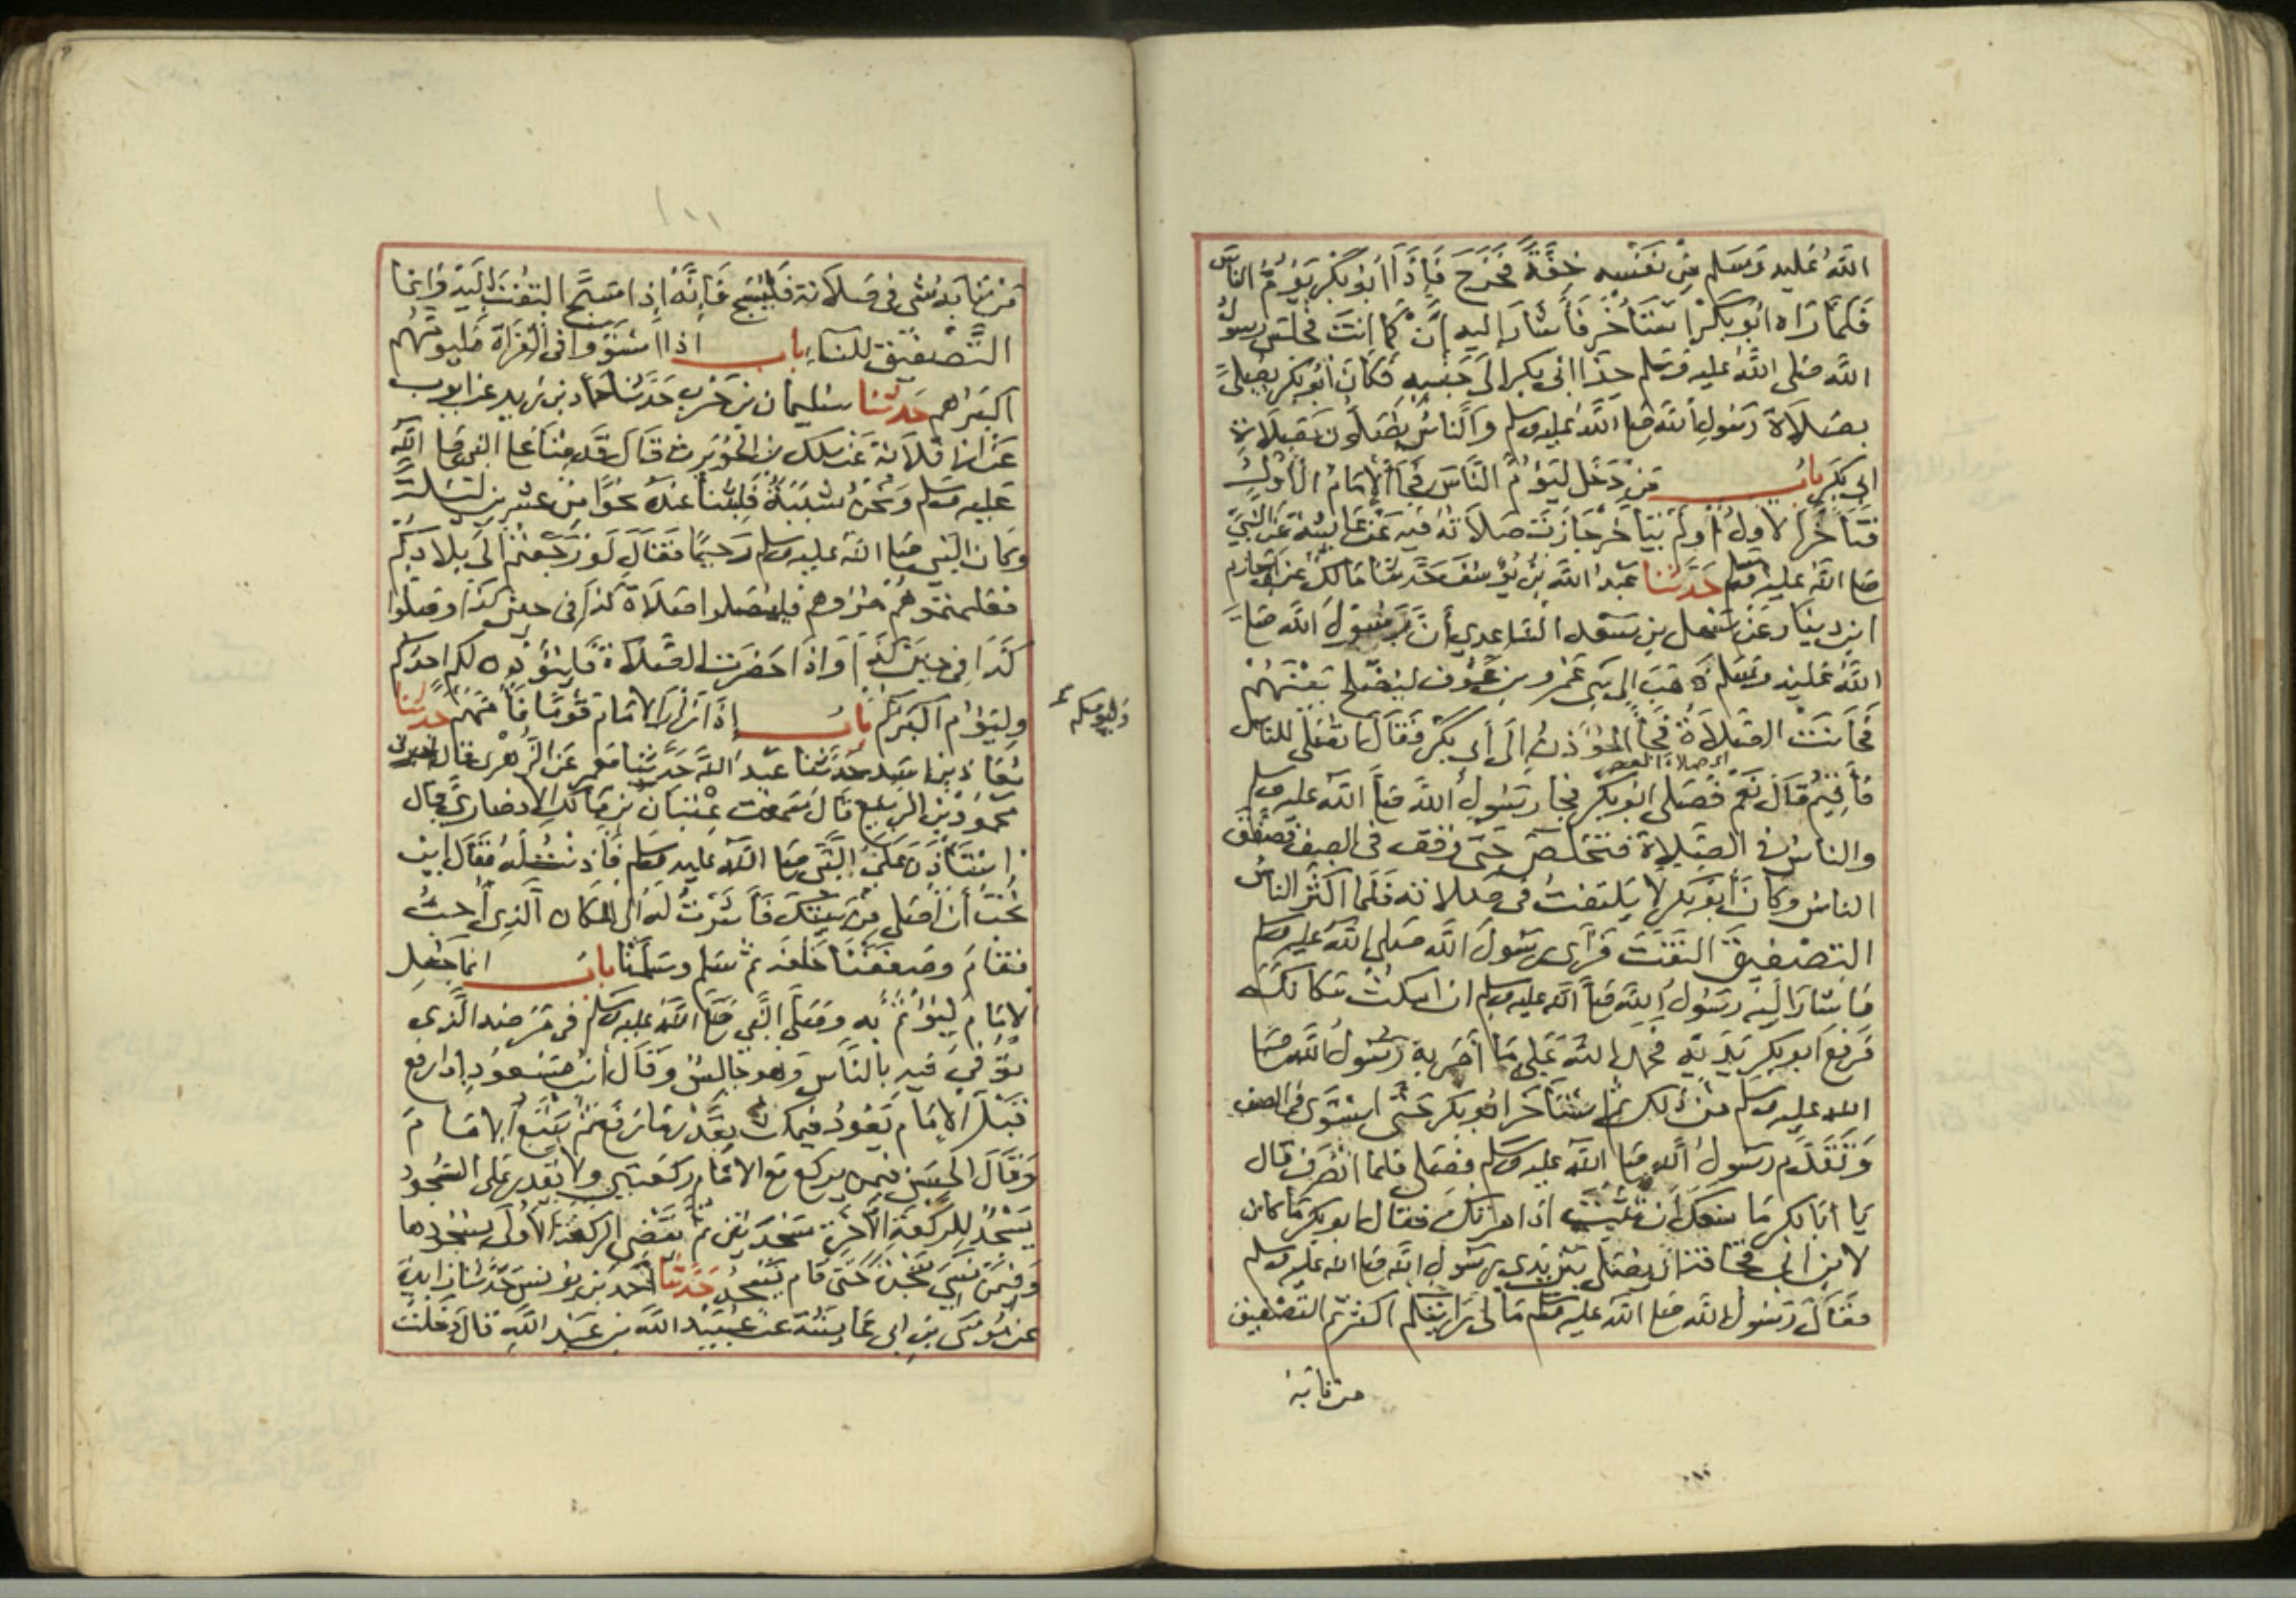 الله عليه وسلم من نفسه خفة فخرج فإذا أبو بكر يؤم الناس
فلما راه ابو بكر استأخر فأشار إليه أن كما انت فجلس رسول
الله صلى الله عليه وسلم حذا ابي بكر إلى جنبه فكان أبو بكر يصلي
بصلاة رسول الله صلى الله عليه وسلم والناس يصلون بصلاة
ابي بكر باب من دخل ليؤم الناس فجأ الإمام الأول
فتأخر الاول أو لم يتأخر جازت صلاته فيه عن عايشة عن النبي
صلى الله عليه وسلم حدثنا عبد الله بن يوسف حدثنا مالك عن ابي حازم
ابن دينار عن سهل بن سعد الساعدي أن رسول الله صلى
الله عليه وسلم ذهب إلى بني عمرو بن عوف ليصلح بينهم
فحانت الصلاة فجأ المؤذن إلى أبي بكر فقال اتصلي للناس
اي صلاة العصر
فأقيم قال نعم فصلى ابو بكر فجا رسول الله صلى الله عليه وسلم
والناس في الصلاة فتخلص حتى وقف في الصف فصفق
الناس وكان أبو بكر لا يلتفت في صلاته فلما اكثر الناس
التصفيق التفت فرأى رسول الله صلى الله عليه وسلم
فاشار اليه رسول الله صلى الله عليه وسلم ان امكث مكانك
فرفع ابو بكر يديه فحمد الله على ما أمر به رسول الله صلى
الله عليه وسلم من ذلك ثم استأخر ابو بكر حتى استوى في الصف
وتقدم رسول الله صلى الله عليه وسلم فصلى فلما انصرف قال
يا ابا بكر ما منعك ان تثبت اذ امرتك فقال ابو بكر ما كان
لابن ابي قحافة ان يصلي بين يدي رسول الله صلى الله عليه وسلم
فقال رسول الله صلى الله عليه وسلم ما لي رايتكم اكثرتم التصفيق
من نابه
من نابه شي في صلاته فليسبح فإنه إذا سبح التفت اليه وانما
التصفيق للنساء باب اذا استووا في القراة فليؤمهم
اكبرهم حدثنا سليمان بن حرب حدثنا حماد بن زيد عن ايوب
عن ابي قلابة عن ملك بن الحويرث قال قدمنا على النبي صلى الله
عليه وسلم ونحن شببة فلبثنا عنده نحوا من عشرين ليلة
وكان النبي صلى الله عليه وسلم رحيما فقال لو رجعتم إلى بلادكم
فعلمتموهم مروهم فليصلوا صلاة كذا في حين كذا وصلوة
كذا في حين كذا واذا حضرت الصلاة فليؤذن لكم احدكم
وليؤمكم
وليؤم اكبركم باب إذا زار الامام قوما فأمهم حدثنا
معاذ بن اسد حدثنا عبد الله حدثنا معمر عن الزهري قال اخبرني
محمود بن الربيع قال سمعت عتبان بن مالك الانصاري قال
استأذن علي النبي صلى الله عليه وسلم فأذنت له فقال اين
تحب أن أصلي من بيتك فأشرت له الى المكان الذي أحب
فقام وصففنا خلفه ثم سلم وسلمنا باب انما جعل
الامام ليؤتم به وصلى النبي صلى الله عليه وسلم في مرضه الذي
توفي فيه بالناس وهو جالس وقال ابن مسعود إذا رفع
قبل الامام يعود فيمكث بقدر ما رفع ثم يتبع الامام
وقال الحسن فيمن يركع مع الامام ركعتين ولا يقدر على السجود
يسجد للركعة الآخرة سجدتين ثم يقضي الركعة الأولى بسجودها
وفيمن نسي سجدة حتى قام يسجد حدثنا أحمد بن يونس حدثنا زايدة
عن موسى بن ابي عايشة عن عبيد الله بن عبد الله قال دخلت